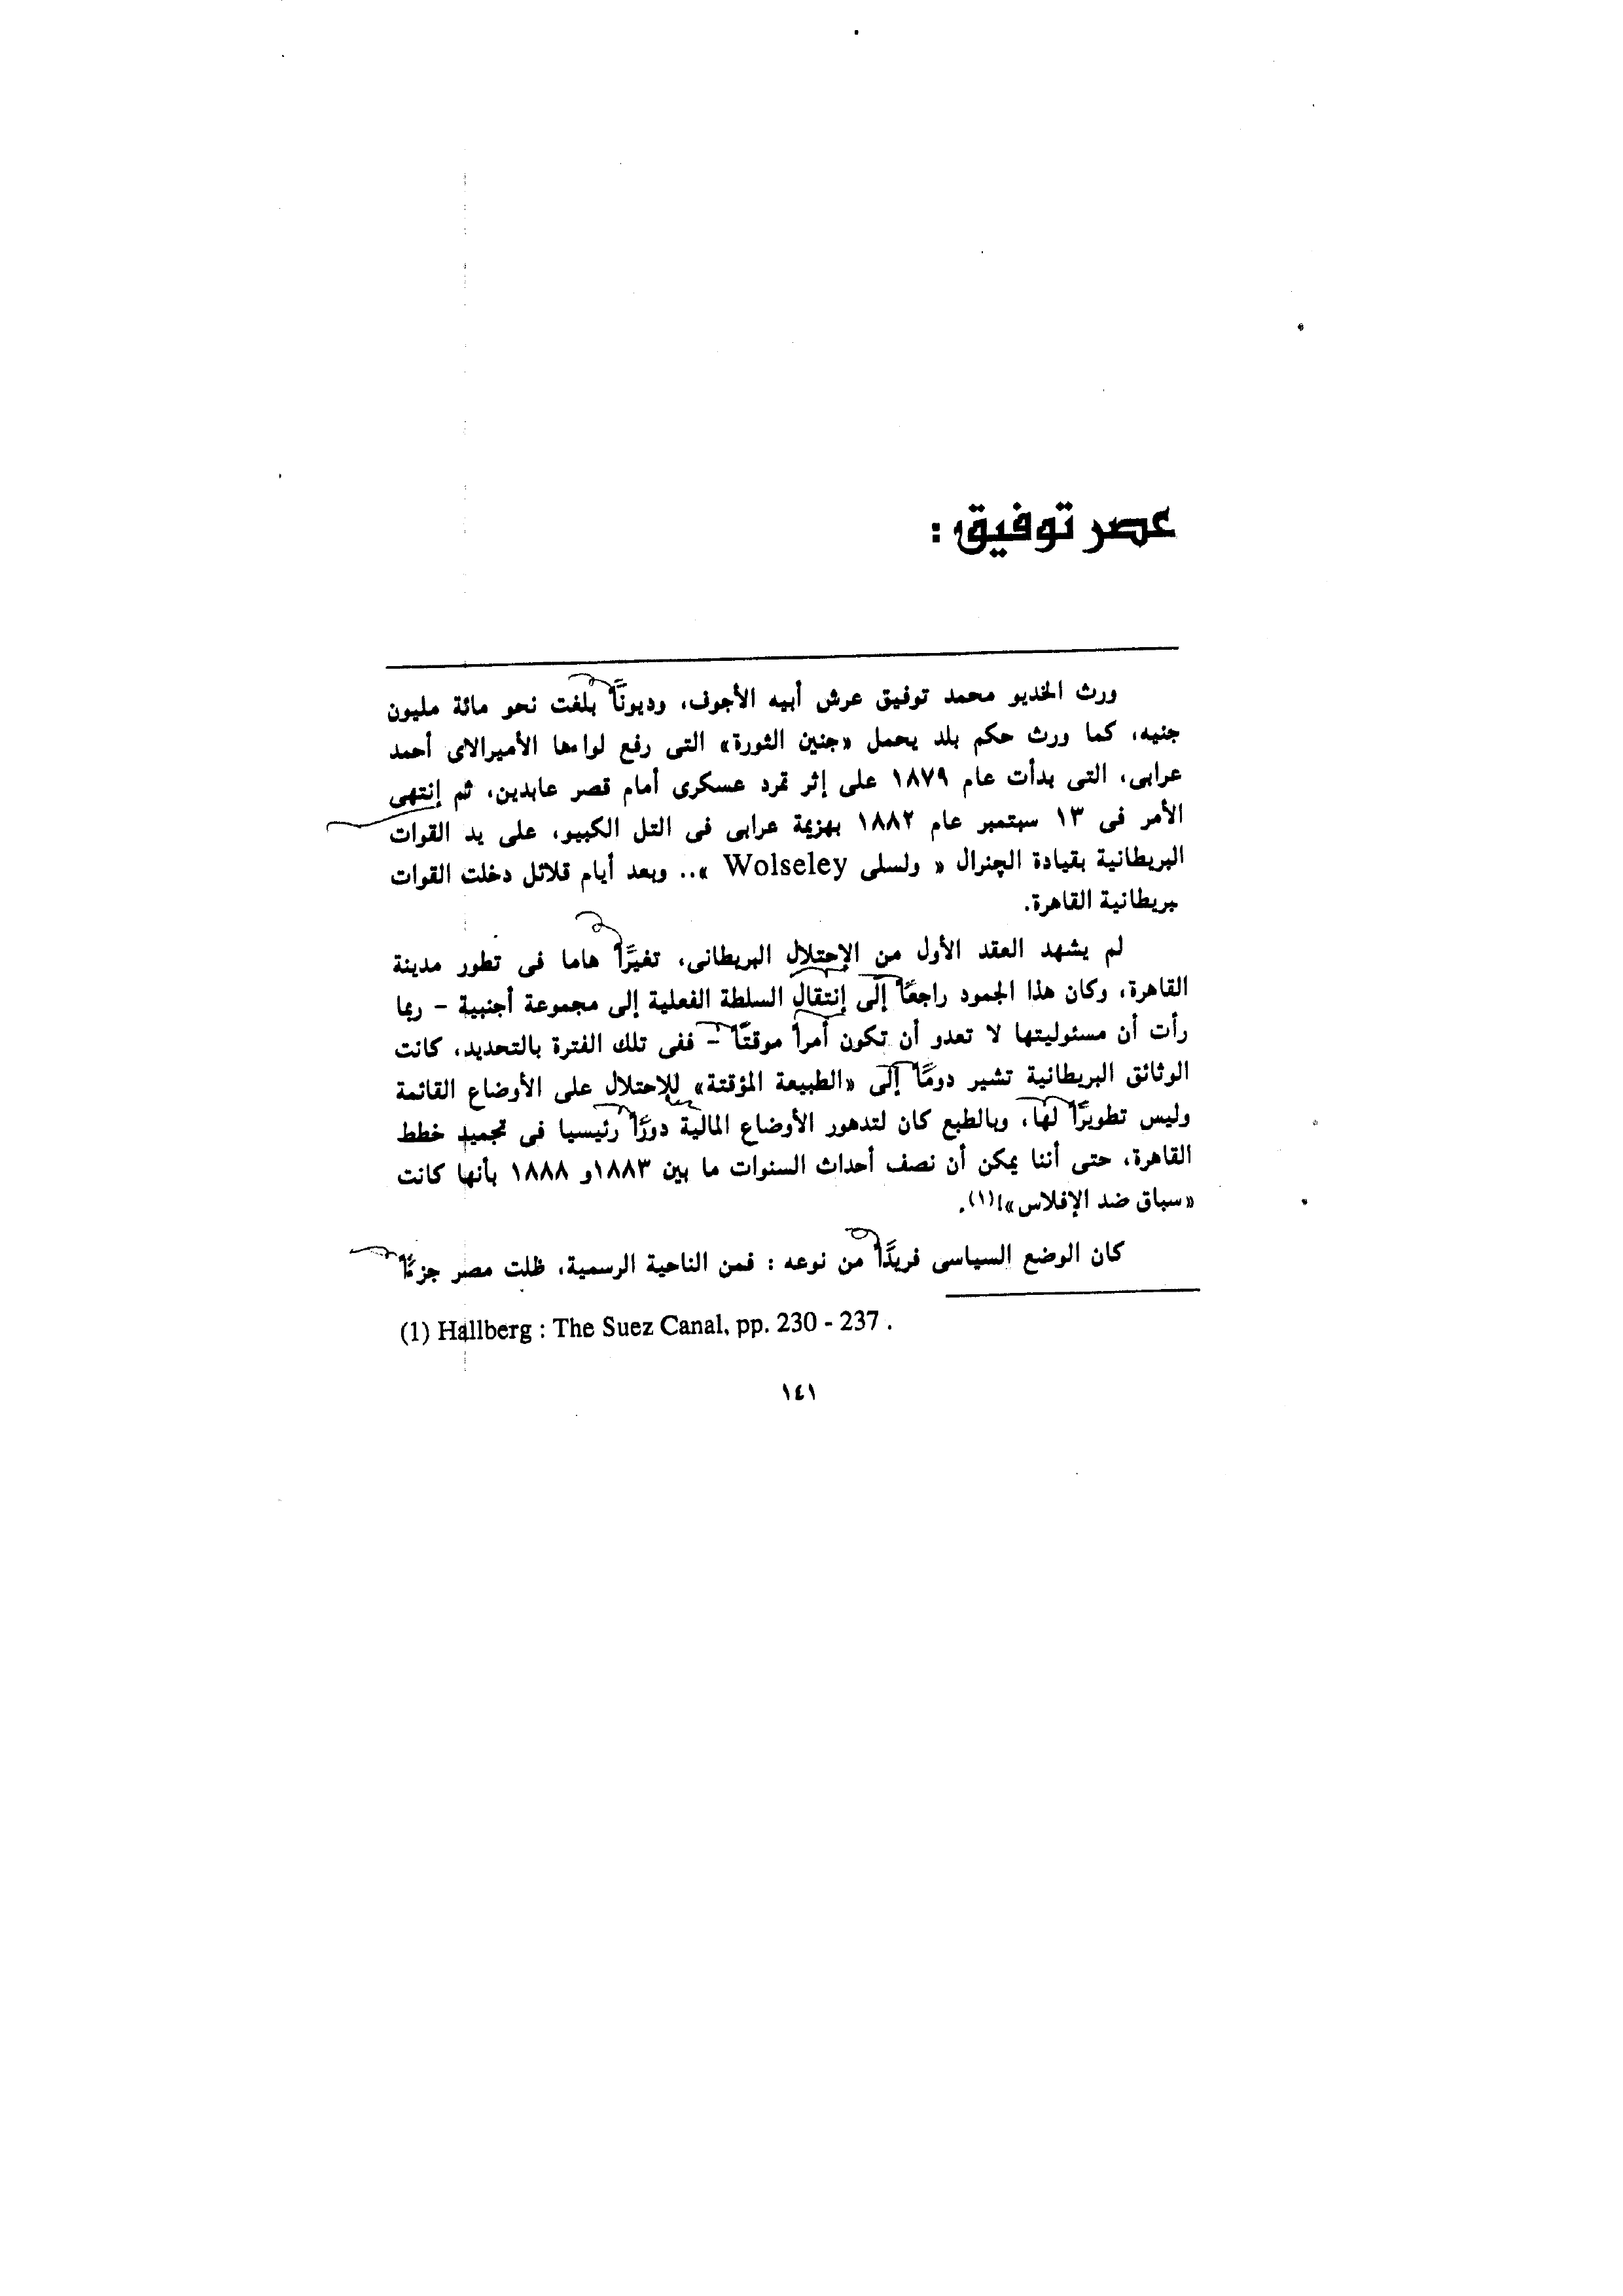 عصر توفيق :
ورث الخديو محمد توفيق عرش أبيه الأجوف، وديونًا بلغت نحو مائة مليون
جنيه، كما ورث حكم بلد يحمل «جنين الثورة» التى رفع لواءها الأميرالاى أحمد
عرابى، التى بدأت عام ١٨٧٩ على إثر تمرد عسكرى أمام قصر عابدين، ثم إنتهى
الأمر فى ١٣ سبتمبر عام ١٨٨٢ بهزيمة عرابى فى التل الكبيو، على يد القوات
البريطانية بقيادة الچنرال « ولسلى Wolseley ».. وبعد أيام قلائل دخلت القوات
بريطانية القاهرة.
لم يشهد العقد الأول من الإحتلال البريطانى، تغيرًا هاما فى تطور مدينة
القاهرة، وكان هذا الجمود راجعًا إلى إنتقال السلطة الفعلية إلى مجموعة أجنبية – ربما
رأت أن مسئوليتها لا تعدو أن تكون أمراً موقتًا – ففى تلك الفترة بالتحديد، كانت
الوثائق البريطانية تشير دومًا إلى «الطبيعة المؤقتة» للإحتلال على الأوضاع القائمة
وليس تطويرًا لها، وبالطبع كان لتدهور الأوضاع المالية دورًا رئيسيا فى تجميد خطط
القاهرة، حتى أننا يمكن أن نصف أحداث السنوات ما بين ١٨٨٣و ١٨٨٨ بأنها كانت
«سباق ضد الإفلاس»!(١).
كان الوضع السياسى فريدًا من نوعه : فمن الناحية الرسمية، ظلت مصر جزءًا
(1) Hallberg : The Suez Canal, pp. 230 - 237 .
١٤١